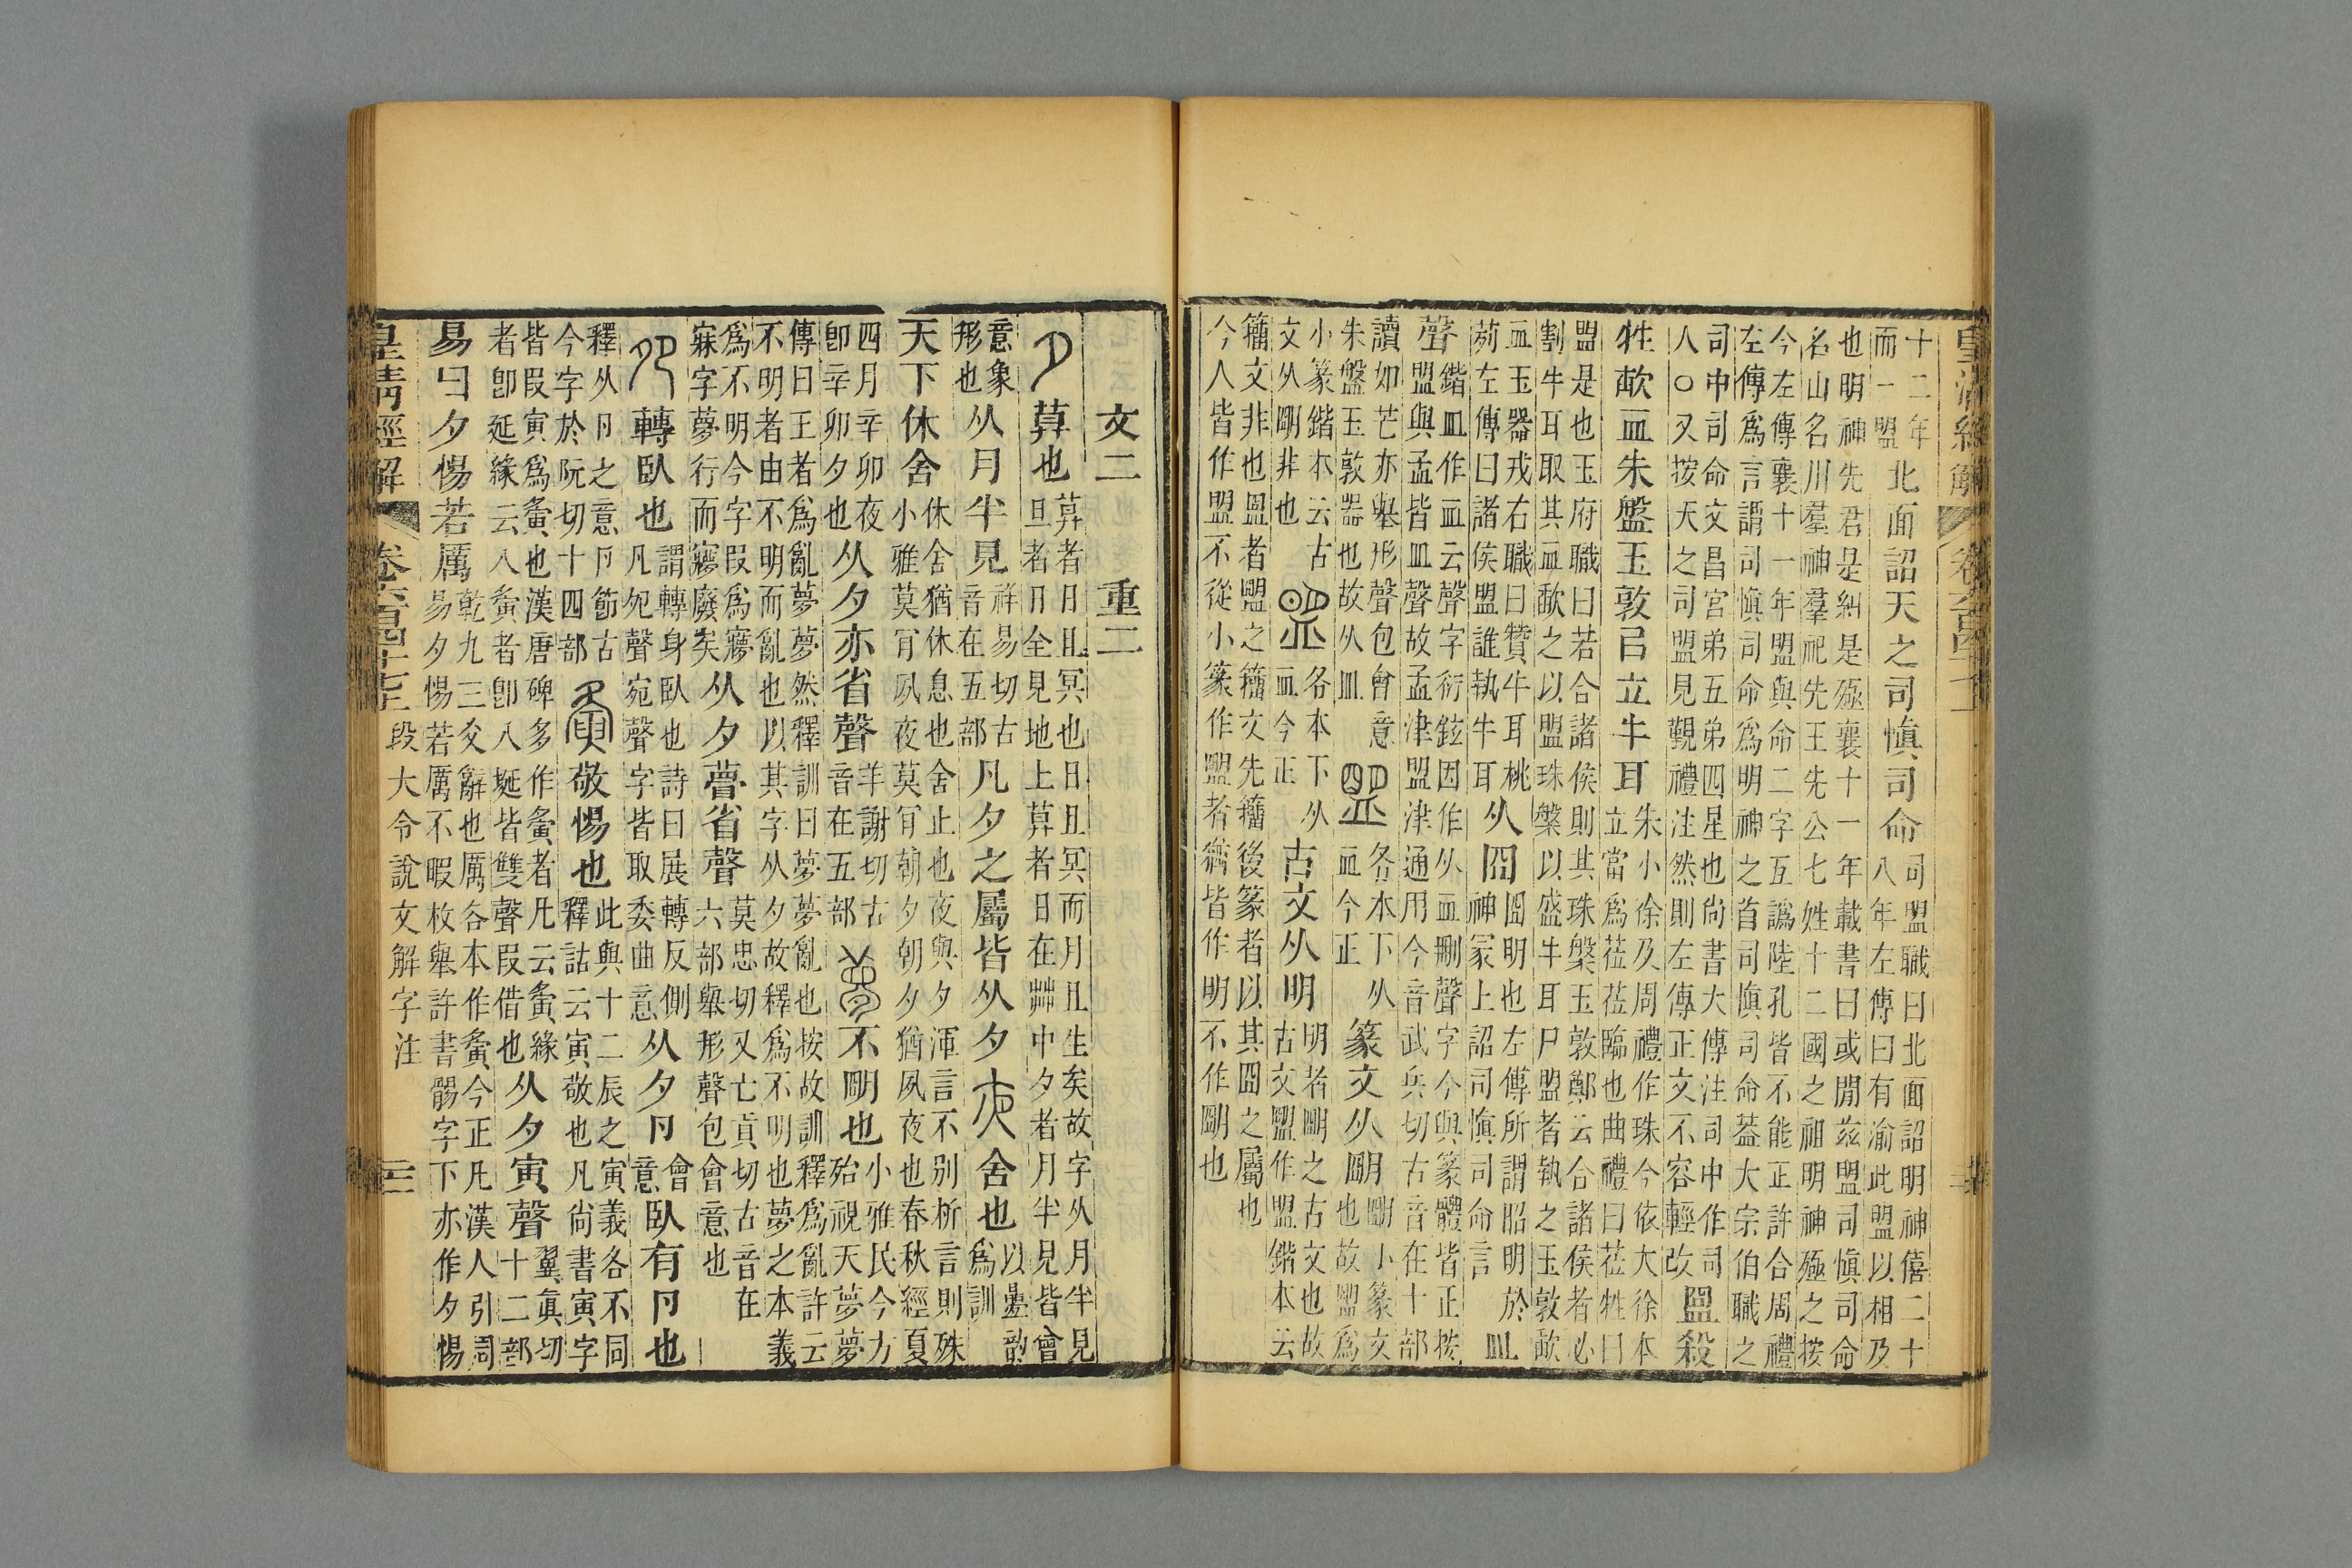 皇清經解 卷六百四十七上
十二年
而一盟
北面詔天之司慎司命
司盟職曰北面詔明神僖二十
八年左傳曰有渝此盟以相及
也明神先君是糾是殛襄十一年載書曰或閒茲盟司慎司命
名山名川羣神羣祀先王先公七姓十二國之祖明神殛之按
今左傳襄十一年盟與命二字五譌陸孔皆不能正許合周禮
左傳爲言謂司慎司命爲明神之首司慎司命葢大宗伯職之
司中司命文昌宮弟五弟四星也尙書大傳注司中作司
人○又按天之司盟見覲禮注然則左傳正文不容輕改
盟殺
牲歃血朱盤玉敦㠯立牛耳
朱小徐及周禮作珠今依大徐本
立當爲莅莅臨也曲禮曰莅牲曰
盟是也玉府職曰若合諸侯則其珠槃玉敦鄭云合諸侯者必
割牛耳取其血歃之以盟珠槃以盛牛耳尸盟者執之玉敦歃
血玉器戎右職曰贊牛耳桃
茢左傳曰諸侯盟誰執牛耳
从囧
囧明也左傳所謂昭明於
神冡上詔司慎司命言
皿
聲
鍇皿作血云聲字衍鉉因作从血刪聲字今與篆體皆正按
盟與孟皆皿聲故孟津盟津通用今音武兵切古音在十部
讀如芒亦舉形聲包會意
朱盤玉敦器也故从皿
各本下从
血今正
篆文从朙
朙小篆文
也故盟爲
小篆鍇本云古
文从朙非也
各本下从
血今正
古文从明
明者朙之古文也故
古文盟作盟鍇本云
籒文非也盟者盟之籒文先籒後篆者以其囧之屬也
今人皆作盟不從小篆作盟者猶皆作明不作朙也
文二 重二
夕 莫也
莫者日且冥也日且冥而月且生矣故字从月半見
旦者日全見地上莫者日在茻中夕者月半見皆會
意象
形也
从月半見
祥易切古
音在五部
凡夕之屬皆从夕 夜 舍也
以曡韵
爲訓
天下休舍
休舍猶休息也舍止也夜與夕渾言不别析言則殊
小雅莫肎夙夜莫肎朝夕朝夕猶夙夜也春秋經夏
四月辛卯夜
卽辛卯夕也
从夕亦省聲
羊謝切古
音在五部
夢 不朙也
小雅民今方
殆視天夢夢
傳曰王者爲亂夢夢然釋訓曰夢夢亂也按故訓釋爲亂許云
不明者由不明而亂也以其字从夕故釋爲不明也夢之本義
爲不明今字叚爲㝱
寐字夢行而㝱廢矣
从夕瞢省聲
莫忠切又亡貢切古音在
六部舉形聲包會意也
夗 轉臥也
謂轉身臥也詩曰展轉反側
凡夗聲宛聲字皆取委曲意
从夕卪
會
意
臥有卪也
釋从卪之意卪節古
今字於阮切十四部
夤 敬惕也
此與十二辰之寅義各不同
釋詁云寅敬也凡尙書寅字
皆叚寅爲夤也漢唐碑多作夤者凡云夤緣
者卽延緣云八夤者卽八埏皆雙聲叚借也
从夕寅聲
翼眞切
十二部
易曰夕惕若厲
易乾九三爻辭也厲各本作夤今正凡漢人引周
易夕惕若厲不暇枚舉許書骼字下亦作夕惕
皇清經解 卷六百四十七上 段大令說文解字注 三